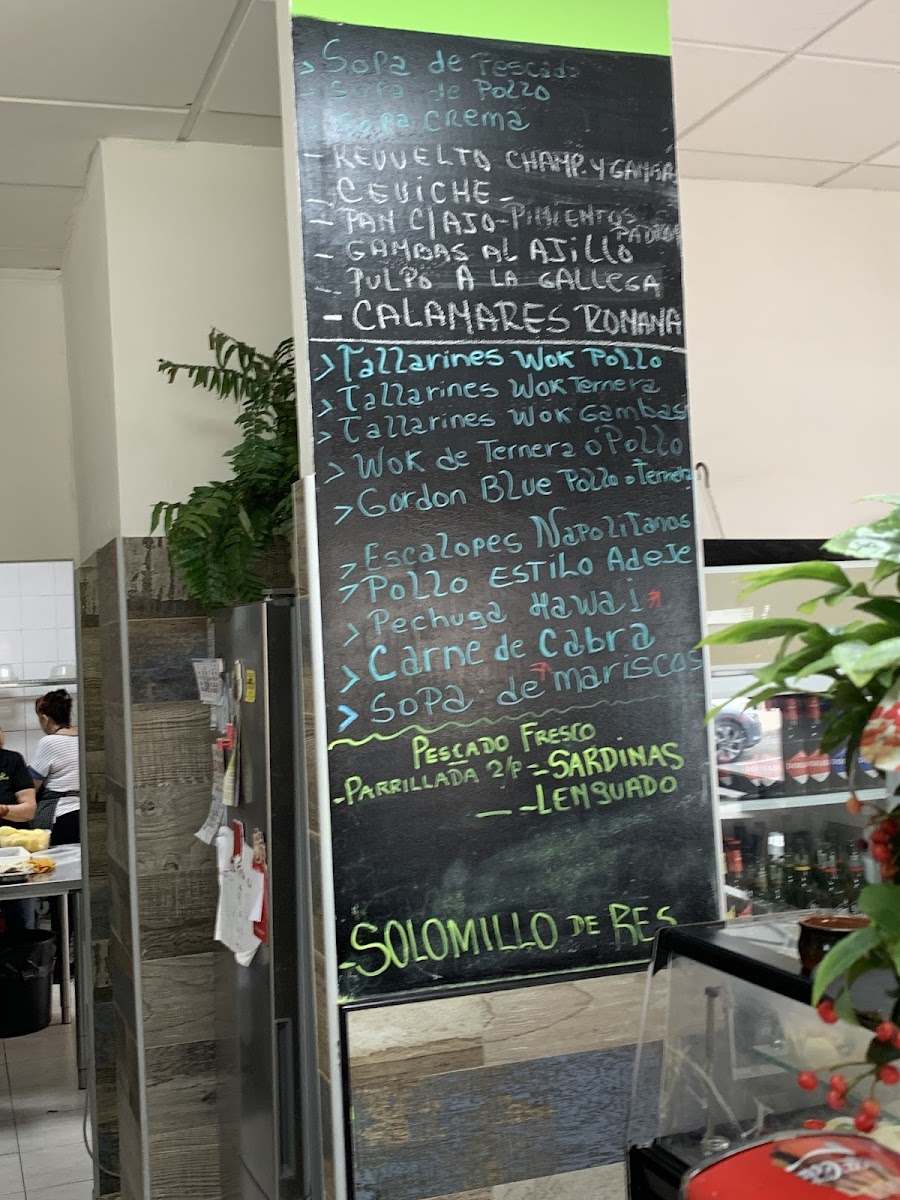 > Sopa de Pescado
- Sopa de Pollo
Sopa crema
- REVUELTO CHAMP. Y GAMBAS
- CEVICHE -
- PAN C/AJO - PIMIENTOS PADRON
- GAMBAS AL AJILLO
- PULPO A LA GALLEGA
- CALAMARES ROMANA
> Tallarines Wok Pollo
> Tallarines Wok Ternera
> Tallarines Wok Gambas
> Wok de Ternera o Pollo
> Gordon Blue Pollo o Ternera
> Escalopes Napolitanos
> Pollo ESTILO Adeje
> Pechuga Hawai
> Carne de Cabra
> Sopa de mariscos
PESCADO FRESCO
- PARRILLADA 2/P - SARDINAS
- LENGUADO
- SOLOMILLO DE RES